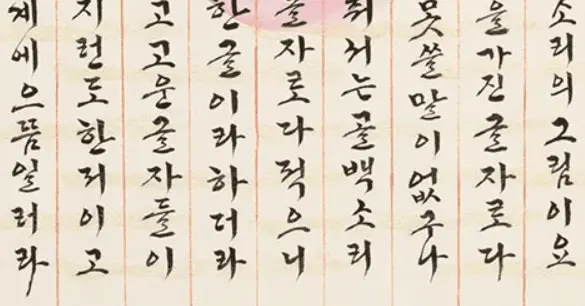 소리의그림이요
을가진글자로다
못쓸말이없구나
쥐저는골백소리
글자로다적으니
한글이라하더라
고고운글자들이
지런도한저이고
계에으뜸일러라